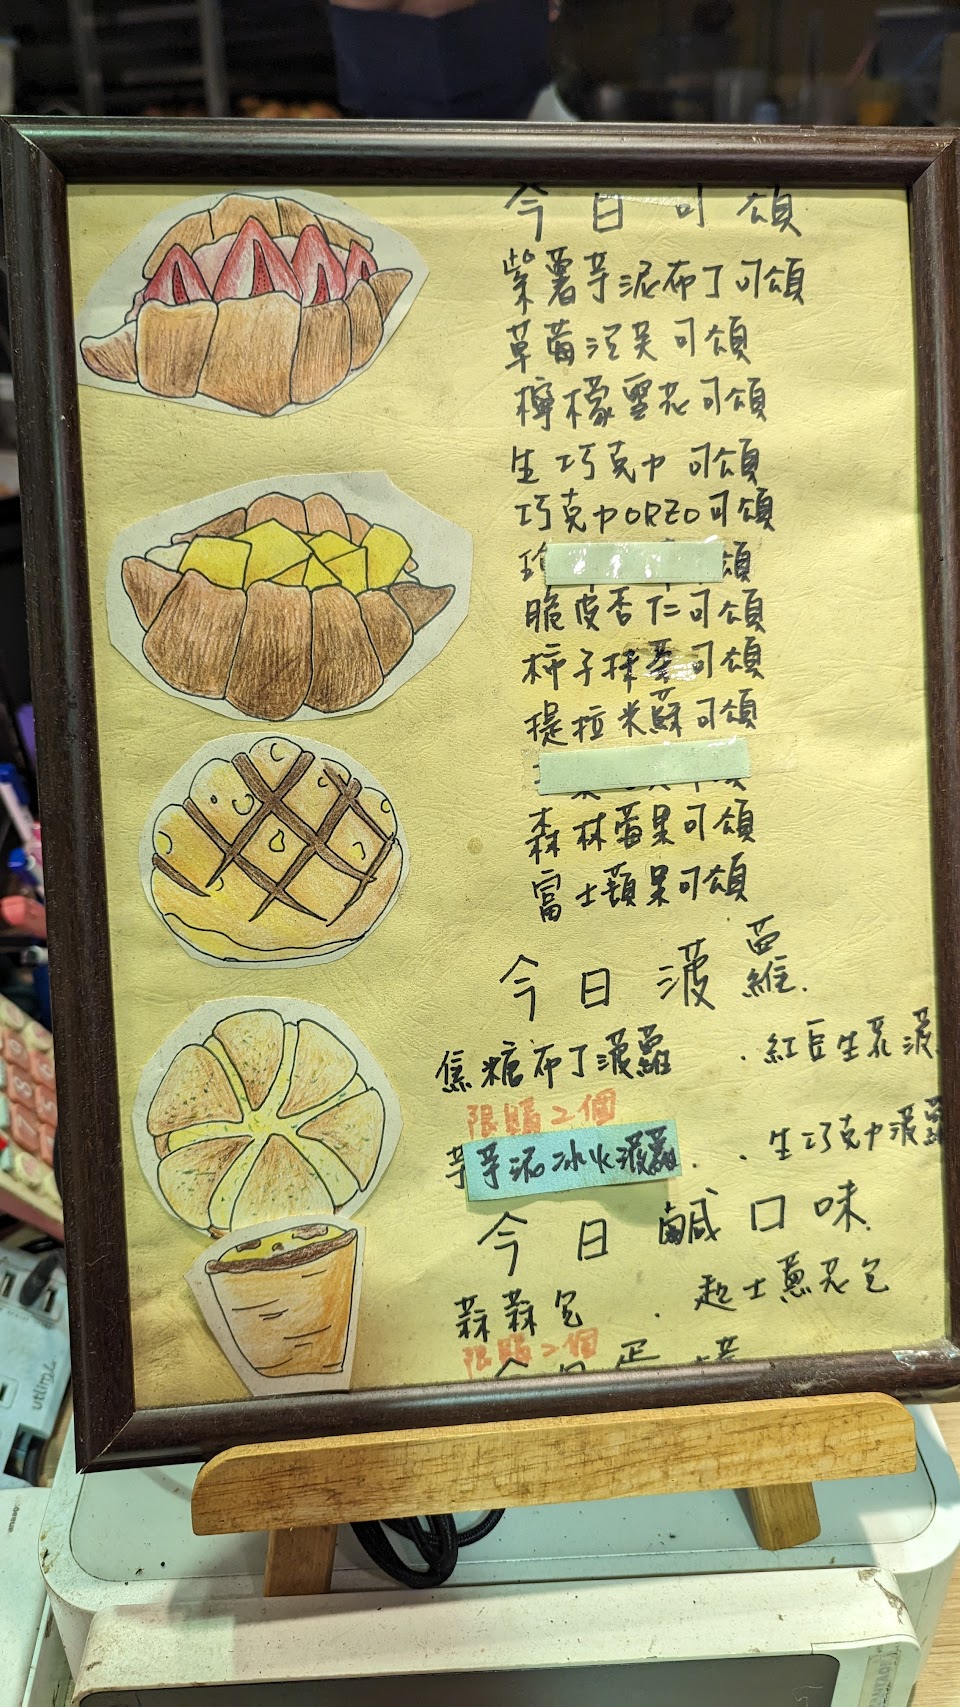 今日可頌
紫薯芋泥布丁可頌
草莓泡芙可頌
檸檬雪花可頌
生巧克力可頌
巧克力ORZO可頌
頌
脆皮杏仁可頌
柿子抹茶可頌
提拉米蘇可頌
森林莓果可頌
富士蘋果可頌
今日菠蘿.
焦糖布丁菠蘿 .紅豆生乳菠
限購2個
芋芋泥冰火菠蘿. .生巧克力菠蘿
今日鹹口味.
蒜蒜包 .起士蔥花包
限購2個